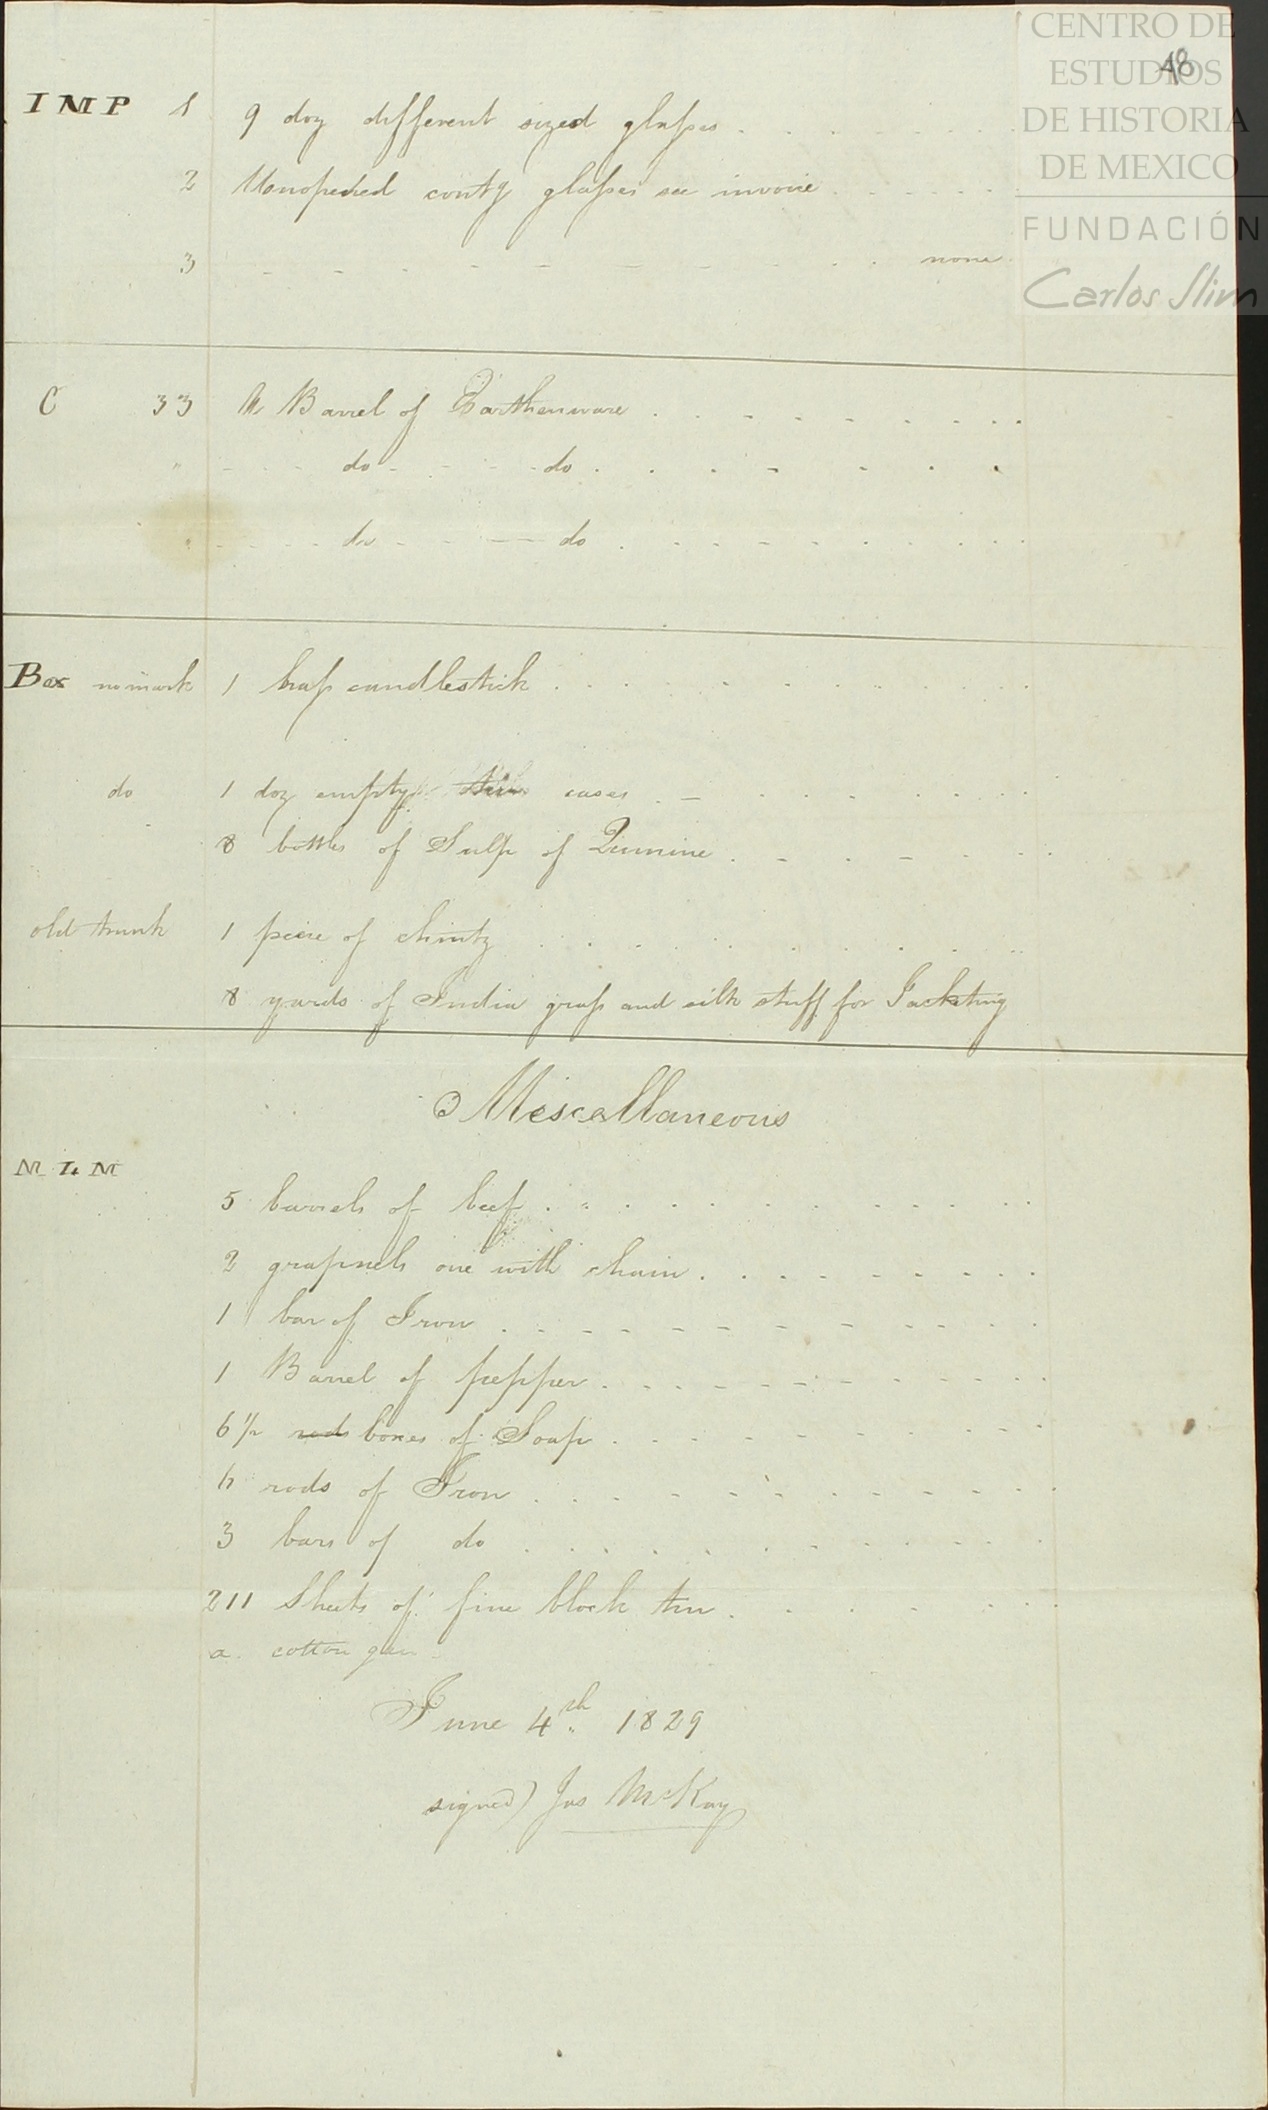 CENTRO DE
ESTUDIOS
DE HISTORIA
DE MEXICO
FUNDACIÓN
Carlos Slim
48
IMP 1 9 doz different sized glasses
2 Unopened contg glasses see invoice
3 none
C 33 A Barrel of Earthenware
" do do
" do do
Box no mark 1 brass candlestick
do 1 doz empty tin cases
8 bottles of Sulp of Quinine
old trunk 1 piece of chintz
8 yards of India grass and silk stuff for Jacketing
Miscellaneous
M L M
5 barrels of beef
2 grapnels one with chain
1 bar of Iron
1 Barrel of pepper
6 1/2 rods boxes of Soap
rods of Iron
3 bars of do
211 Sheets of fine block tin
a cotton gin
June 4th 1829
signed) Jas McKay